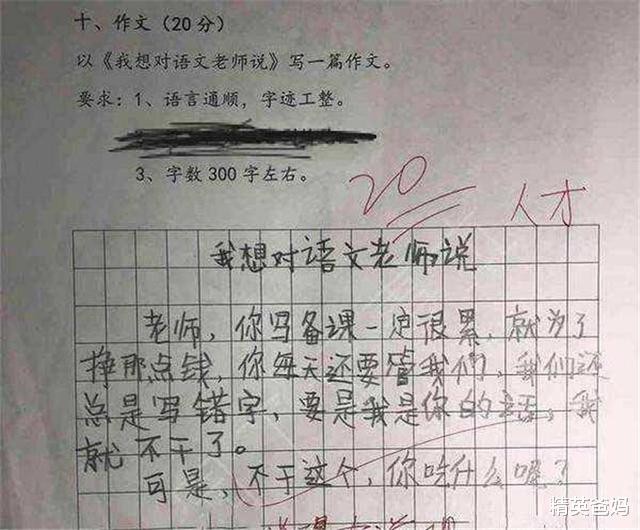 十、作文（20分）
以《我想对语文老师说》写一篇作文。
要求：1、语言通顺，字迹工整。
3、字数300字左右。
20
人才
我想对语文老师说
老师，你写备课一定很累，就为了
挣那点钱，你每天还要管我们，我们还
总是写错字，要是我是你的话，我
就不干了。
可是，不干这个，你吃什么呢？
精英爸妈